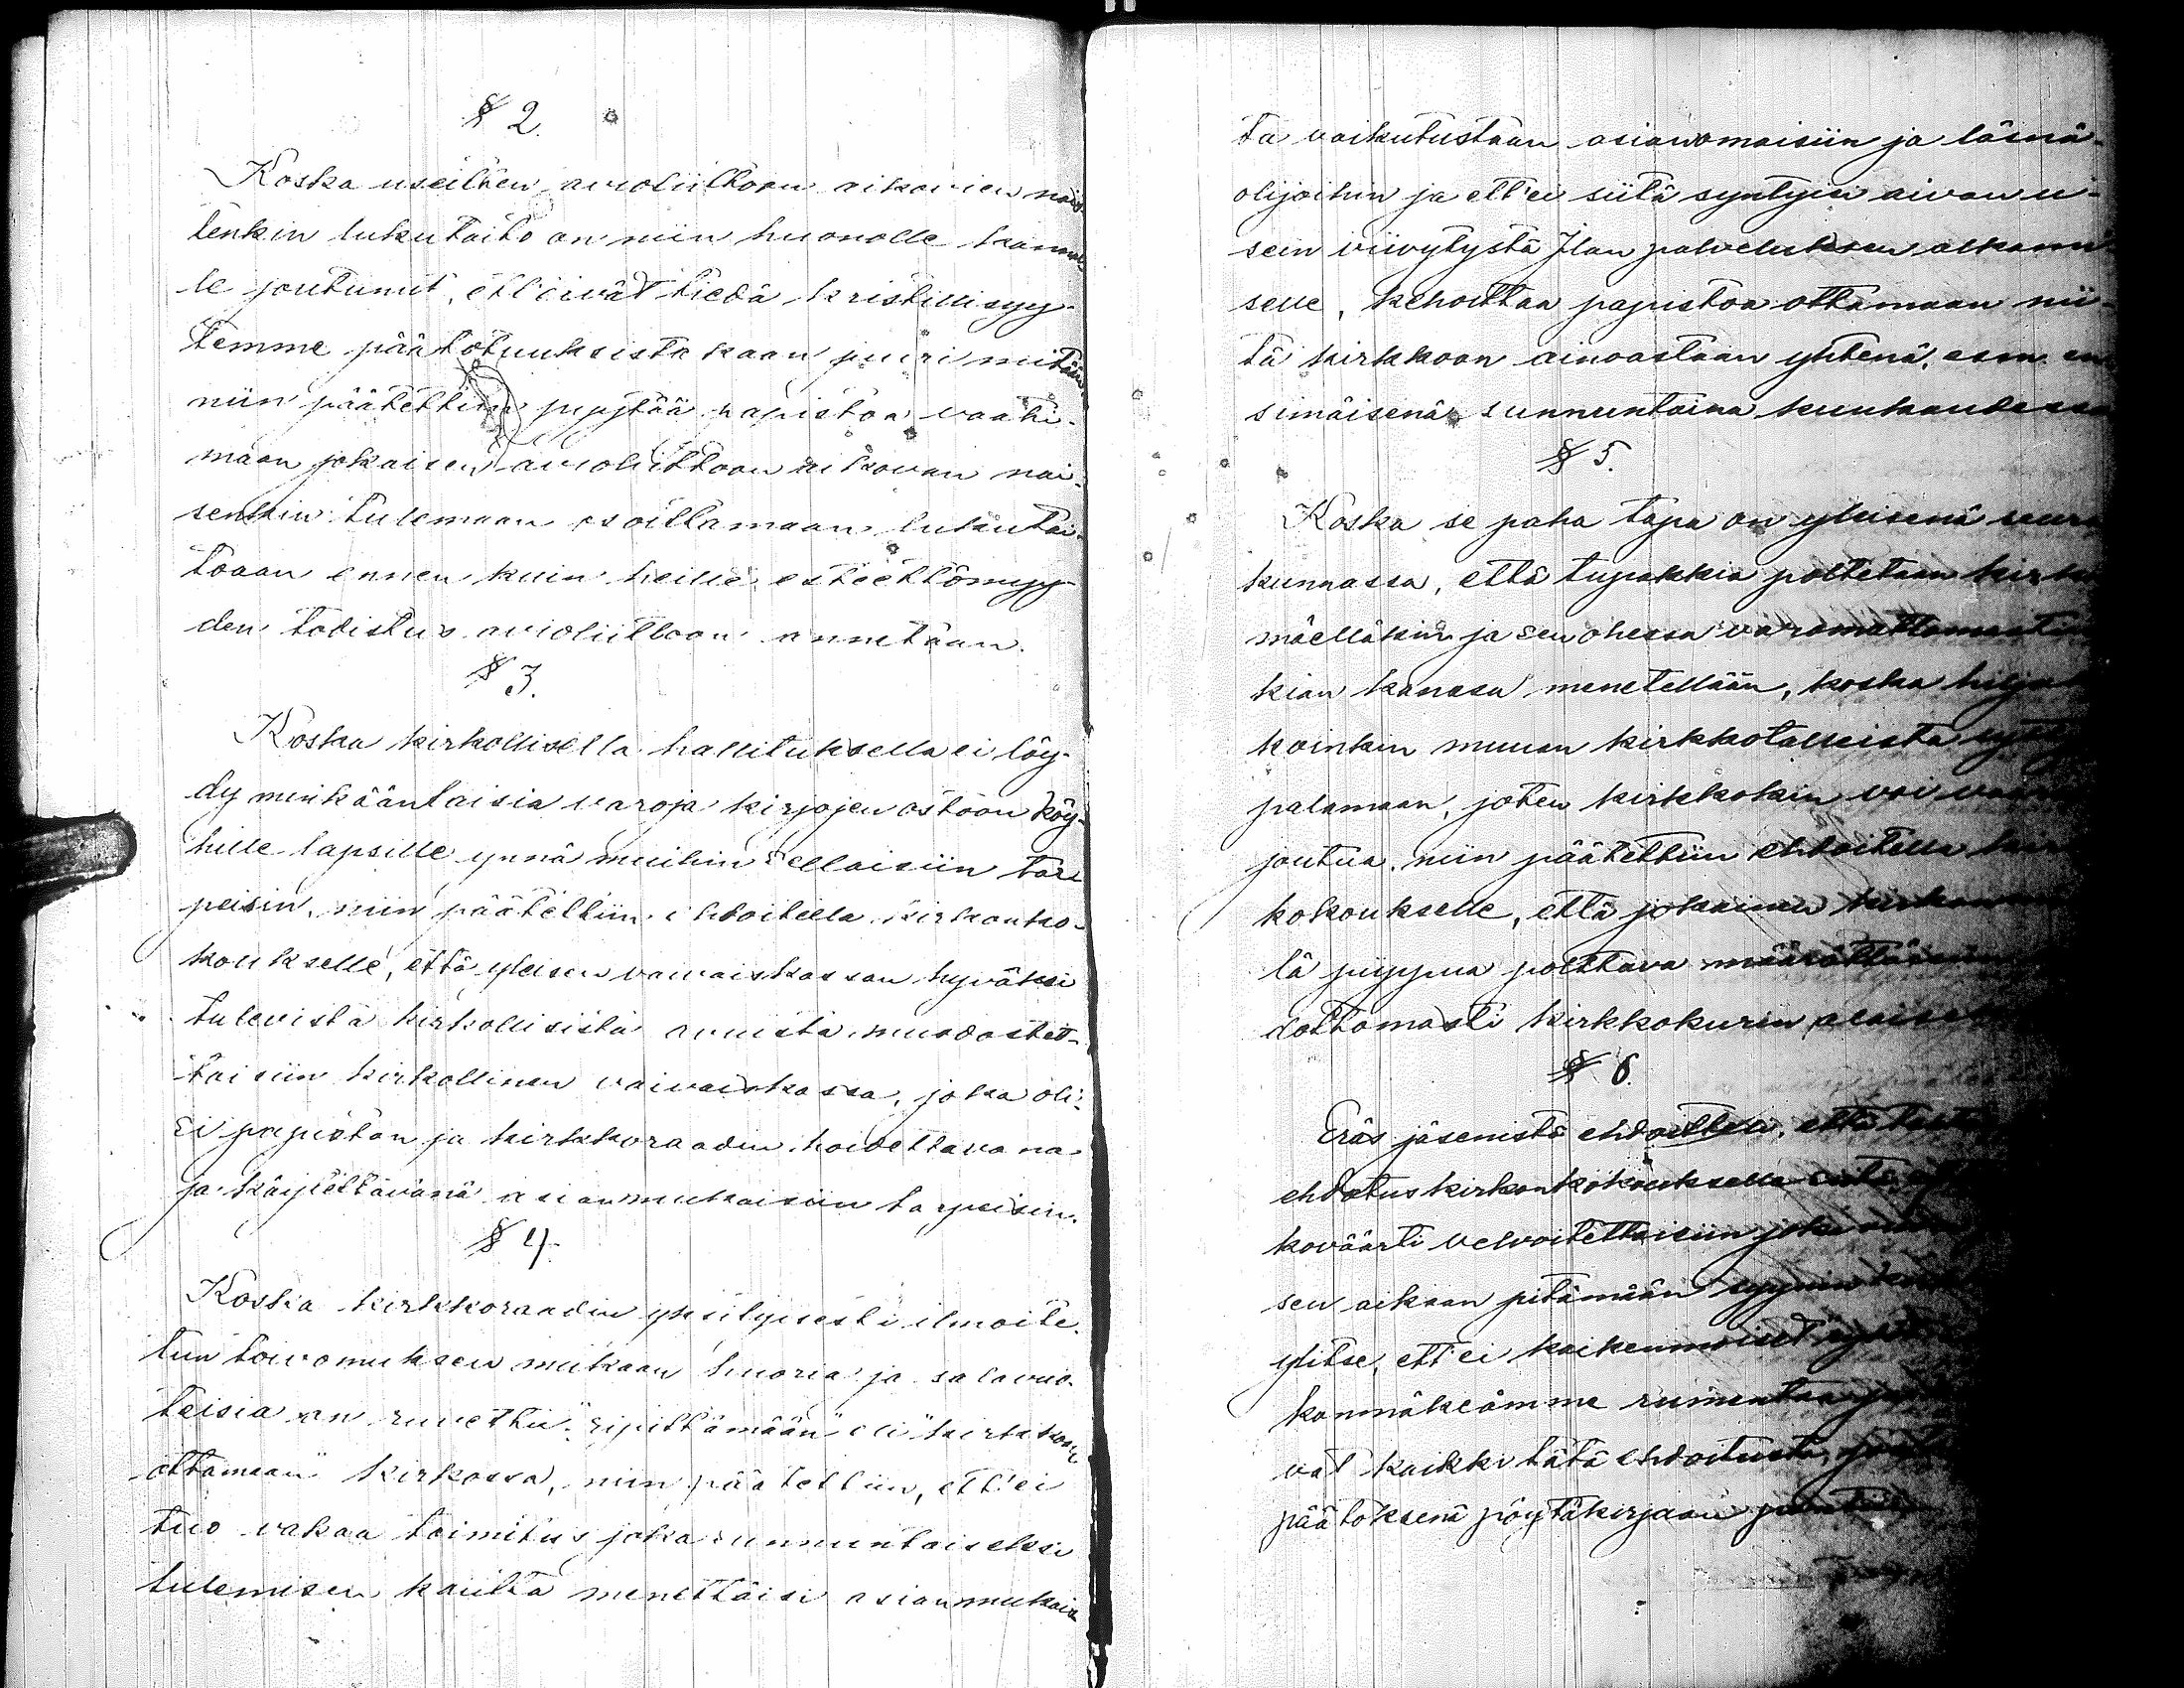 § 2.
Koska useitten avioliittoon aikovien nais-
tenkin lukutaito on niin huonolle kannal-
le joutunut, ett'eivät tiedä kristillisyy-
temme päätotuuksistakaan juuri mitään
niin päätettiin pyytää papistoa vaati-
maan jokaisen avioliittoon aikovan nai-
senkin tulemaan osoittamaan lukutai-
toaan ennen kuin heille esteettömyy-
den todistus avioliittoon annetaan.
§ 3.
Koska kirkollisella hallituksella ei löy-
dy minkäänlaisia varoja kirjojen ostoon köy-
hille lapsille ynnä muihin sellaisiin tar-
peisin, niin päätettiin ehdoitella kirkonko-
koukselle, että yleisen vaivaiskassan hyväksi
tulevista kirkollisista avuista muodostet-
taisiin kirkollinen vaivaiskassa, joka oli-
si papiston ja kirkkoraadin hoidettavana
ja käytettävänä asianmukaisiin tarpeisin.
§ 4.
Koska kirkkoraadin yksityisesti ilmoite-
tun toivomuksen mukaan huoria ja salavuo-
teisia on ruvettu "ripittämään" eli "kirkkoon
ottamaan" kirkossa, niin päätettiin, ett'ei
tuo vakaa toimitus joka sunnuntaiseksi
tulemisen kautta menettäisi asianmukais-
ta vaikutustaan asianomaisiin ja läsnä-
olijoihin ja ett'ei siitä syntyisi aivan u-
sein viivytystä Jlan palveluksen alkami
selle, kehoittaa papistoa ottamaan nii-
tä kirkkoon ainoastaan yhtenä, esm. en
simäisenä sunnuntaina kuukaudessa
§ 5.
Koska se paha tapa on yleisenä seura
kunnassa, että tupakkia poltetaan kirk
mäelläkin ja sen ohessa varomattomasti
kian kanssa menetellään, koska
koinkin muuan kirkkotalleista syt
palamaan, joten kirkkokin voi
joutua, niin päätettiin ehdoitella
kokoukselle, että jokainen kirkon
lä piippua polttava määrättäisiin
dottomasti kirkkokurin alaiseksi
§ 6.
Eräs jäsenistä ehdoitteli, että
ehdotus kirkonkokoukselle että
koväärti velvoitettaisiin joka
sen aikaan pitämään
ylitse, ett'ei kaikenmoiset
konmäkeämme rumentaa
vat kaikki tätä ehdoitusta,
päätöksenä pöytäkirjaan